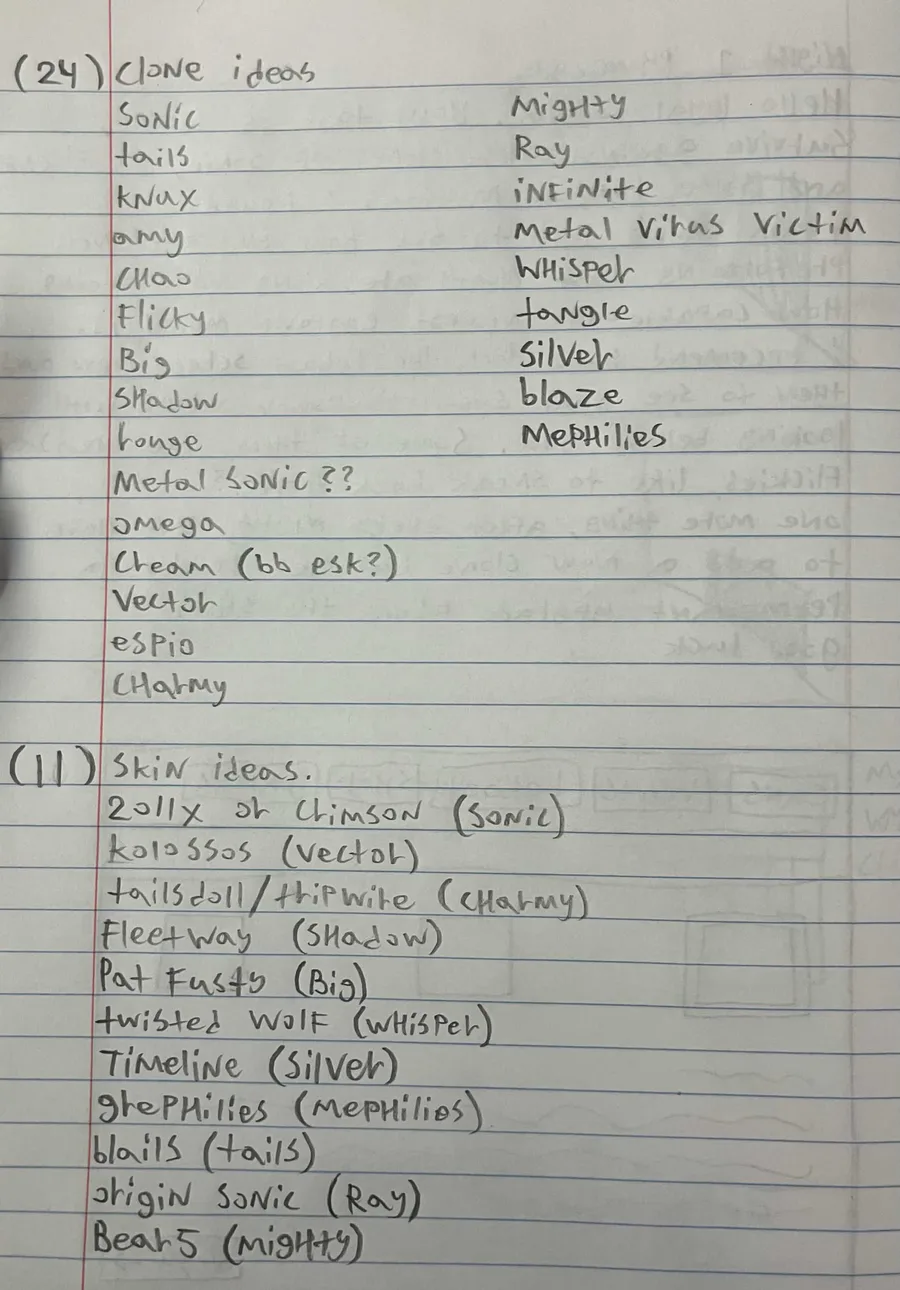 (24) Clone ideas
Sonic
tails
knux
amy
CHao
Flicky
Big
SHadow
rouge
Metal Sonic??
omega
Cream (bb esk?)
Vector
espio
CHarmy
MigHty
Ray
iNFiNite
Metal Virus Victim
WHisper
tangle
Silver
blaze
MepHilies
(11) Skin ideas.
2011x or Crimson (Sonic)
kolossos (Vector)
tailsdoll/tripwire (CHarmy)
Fleetway (SHadow)
Pat Fusty (Big)
twisted wolf (WHisper)
Timeline (Silver)
grepHilies (MepHilies)
blails (tails)
origin Sonic (Ray)
Bear5 (migHty)